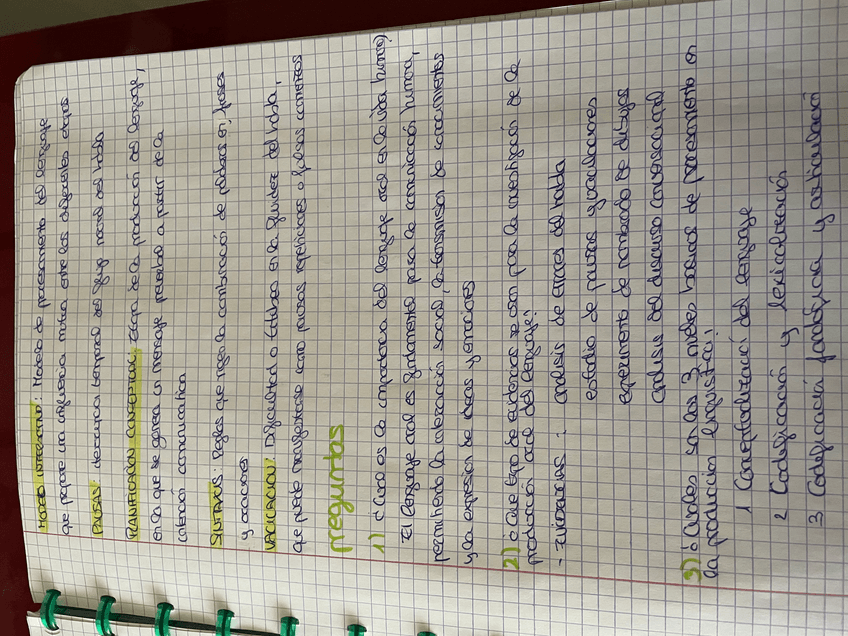 MODELO INTERACTIVO: Modelo de procesamiento del lenguaje
que propone una influencia mutua entre las diferentes etapas
PAUSAS: descansos temporal del flujo normal del habla
PLANIFICACIÓN CONCEPTUAL: Etapa de la producción del lenguaje,
en la que se genera un mensaje preverbal a partir de la
intención comunicativa
SINTAXIS: Reglas que rigen la combinación de palabras en frases
y oraciones
VACILACION: Dificultad o titubeo en la fluidez del habla,
que puede manifestarse como pausas, repeticiones o falsos comienzos
preguntas
1) ¿Cual es la importancia del lenguaje oral en la vida humana?
El lenguaje oral es fundamental para la comunicación humana,
permitiendo la interacción social, la transmisión de conocimientos
y la expresión de ideas y emociones
2) ¿Que tipo de evidencias se usan para la investigación de la
producción oral del lenguaje?
- Evidencias: análisis de errores del habla
estudio de pausas y vacilaciones
experimento de nombrado de dibujos
análisis del discurso conversacional
3) ¿Cuales son los 3 niveles basicos de procesamiento en
la producción linguistica?
1 Conceptualización del lenguaje
2 Codificación y lexicalización
3 Codificación fonológica y articulación